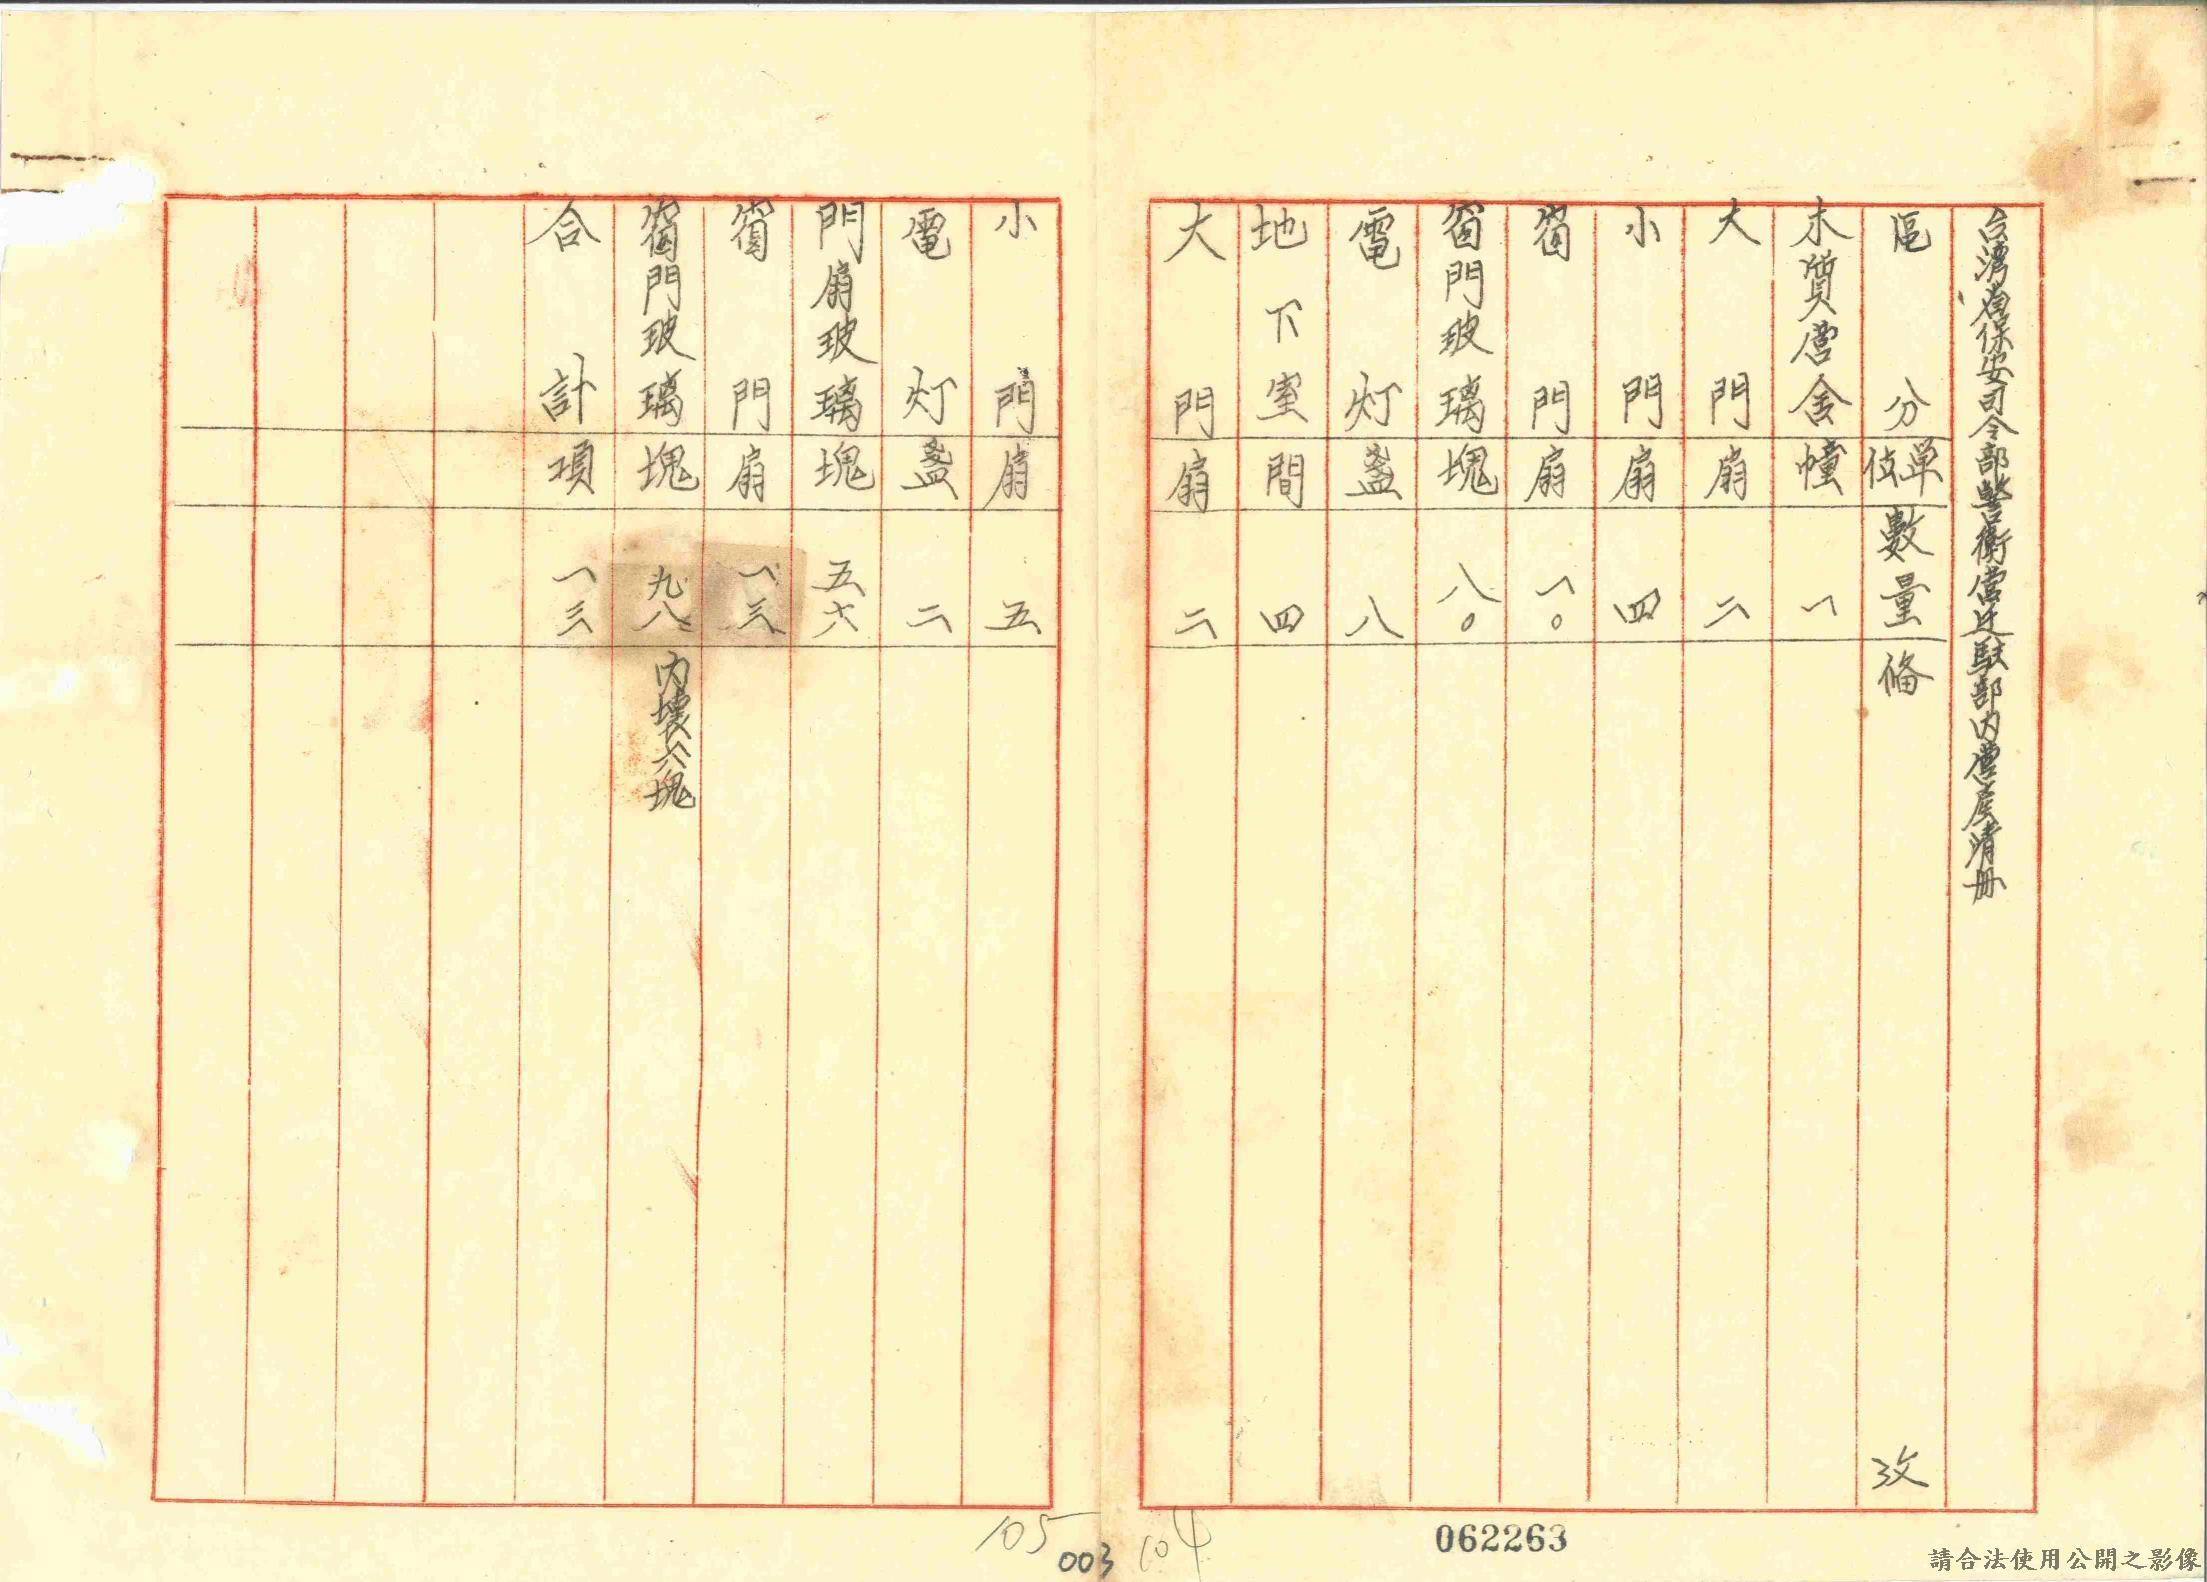 台湾省保安司令部警衛营迁駐部内营房清册
區分 單位 數量 備攷
木質营舍 幢 一
大門 扇 二
小門 扇 四
窗門 扇 一〇
窗門玻璃 塊 八〇
電灯 盞 八
地下室 間 四
大門 扇 二
小門 扇 五
電灯 盞 二
門扇玻璃 塊 五六
窗門 扇 一三
窗門玻璃 塊 九八 内壞六塊
合計 項 一三
105
003
104
062263
請合法使用公開之影像